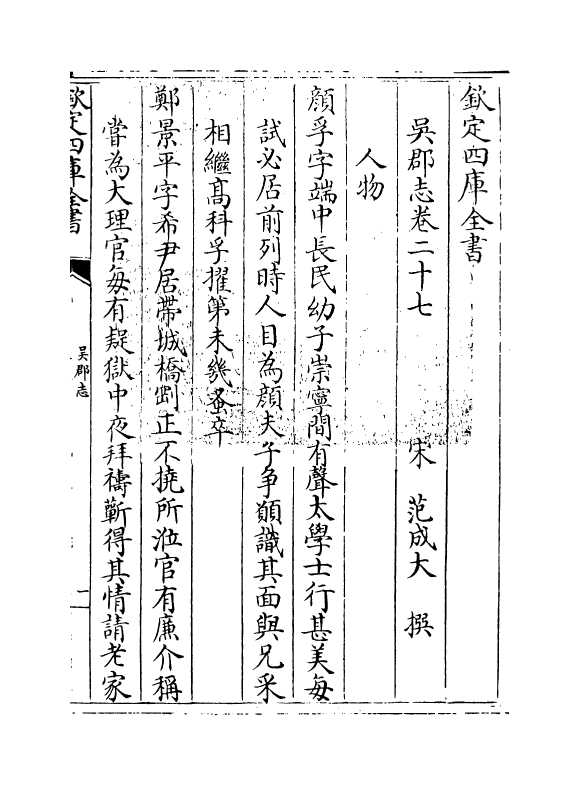 欽定四庫全書
吳郡志卷二十七
宋　范成大　撰
人物
顔孚字端中長民幼子崇寧間有聲太學士行甚美每
試必居前列時人目為顔夫子争願識其面與兄采
相繼髙科孚擢第未幾蚤卒
鄭景平字希尹居帶城橋剛正不撓所涖官有廉介稱
嘗為大理官每有疑獄中夜拜禱蘄得其情請老家
欽定四庫全書
吳郡志